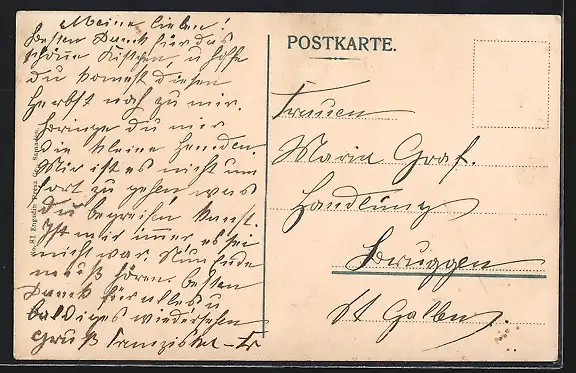 Meine lieben!
Besten Dank für das
schöne Kistchen, u hoffe
du komst diesen
Herbst noch zu mir.
Bringe du mir
die kleine Hemden.
Mir ist es nicht um
fort zu gehen was
Du begreifen kanst.
Ist mir immer es sei
nicht war. Nun Ende
muß hören. Besten
Dank für alles u
baldiges wiedersehen
Gruß
No. 81 Engadin Press Co. Samaden
POSTKARTE.
Frauen
Maria Graf.
Handlung
Bruggen
St Gallen.